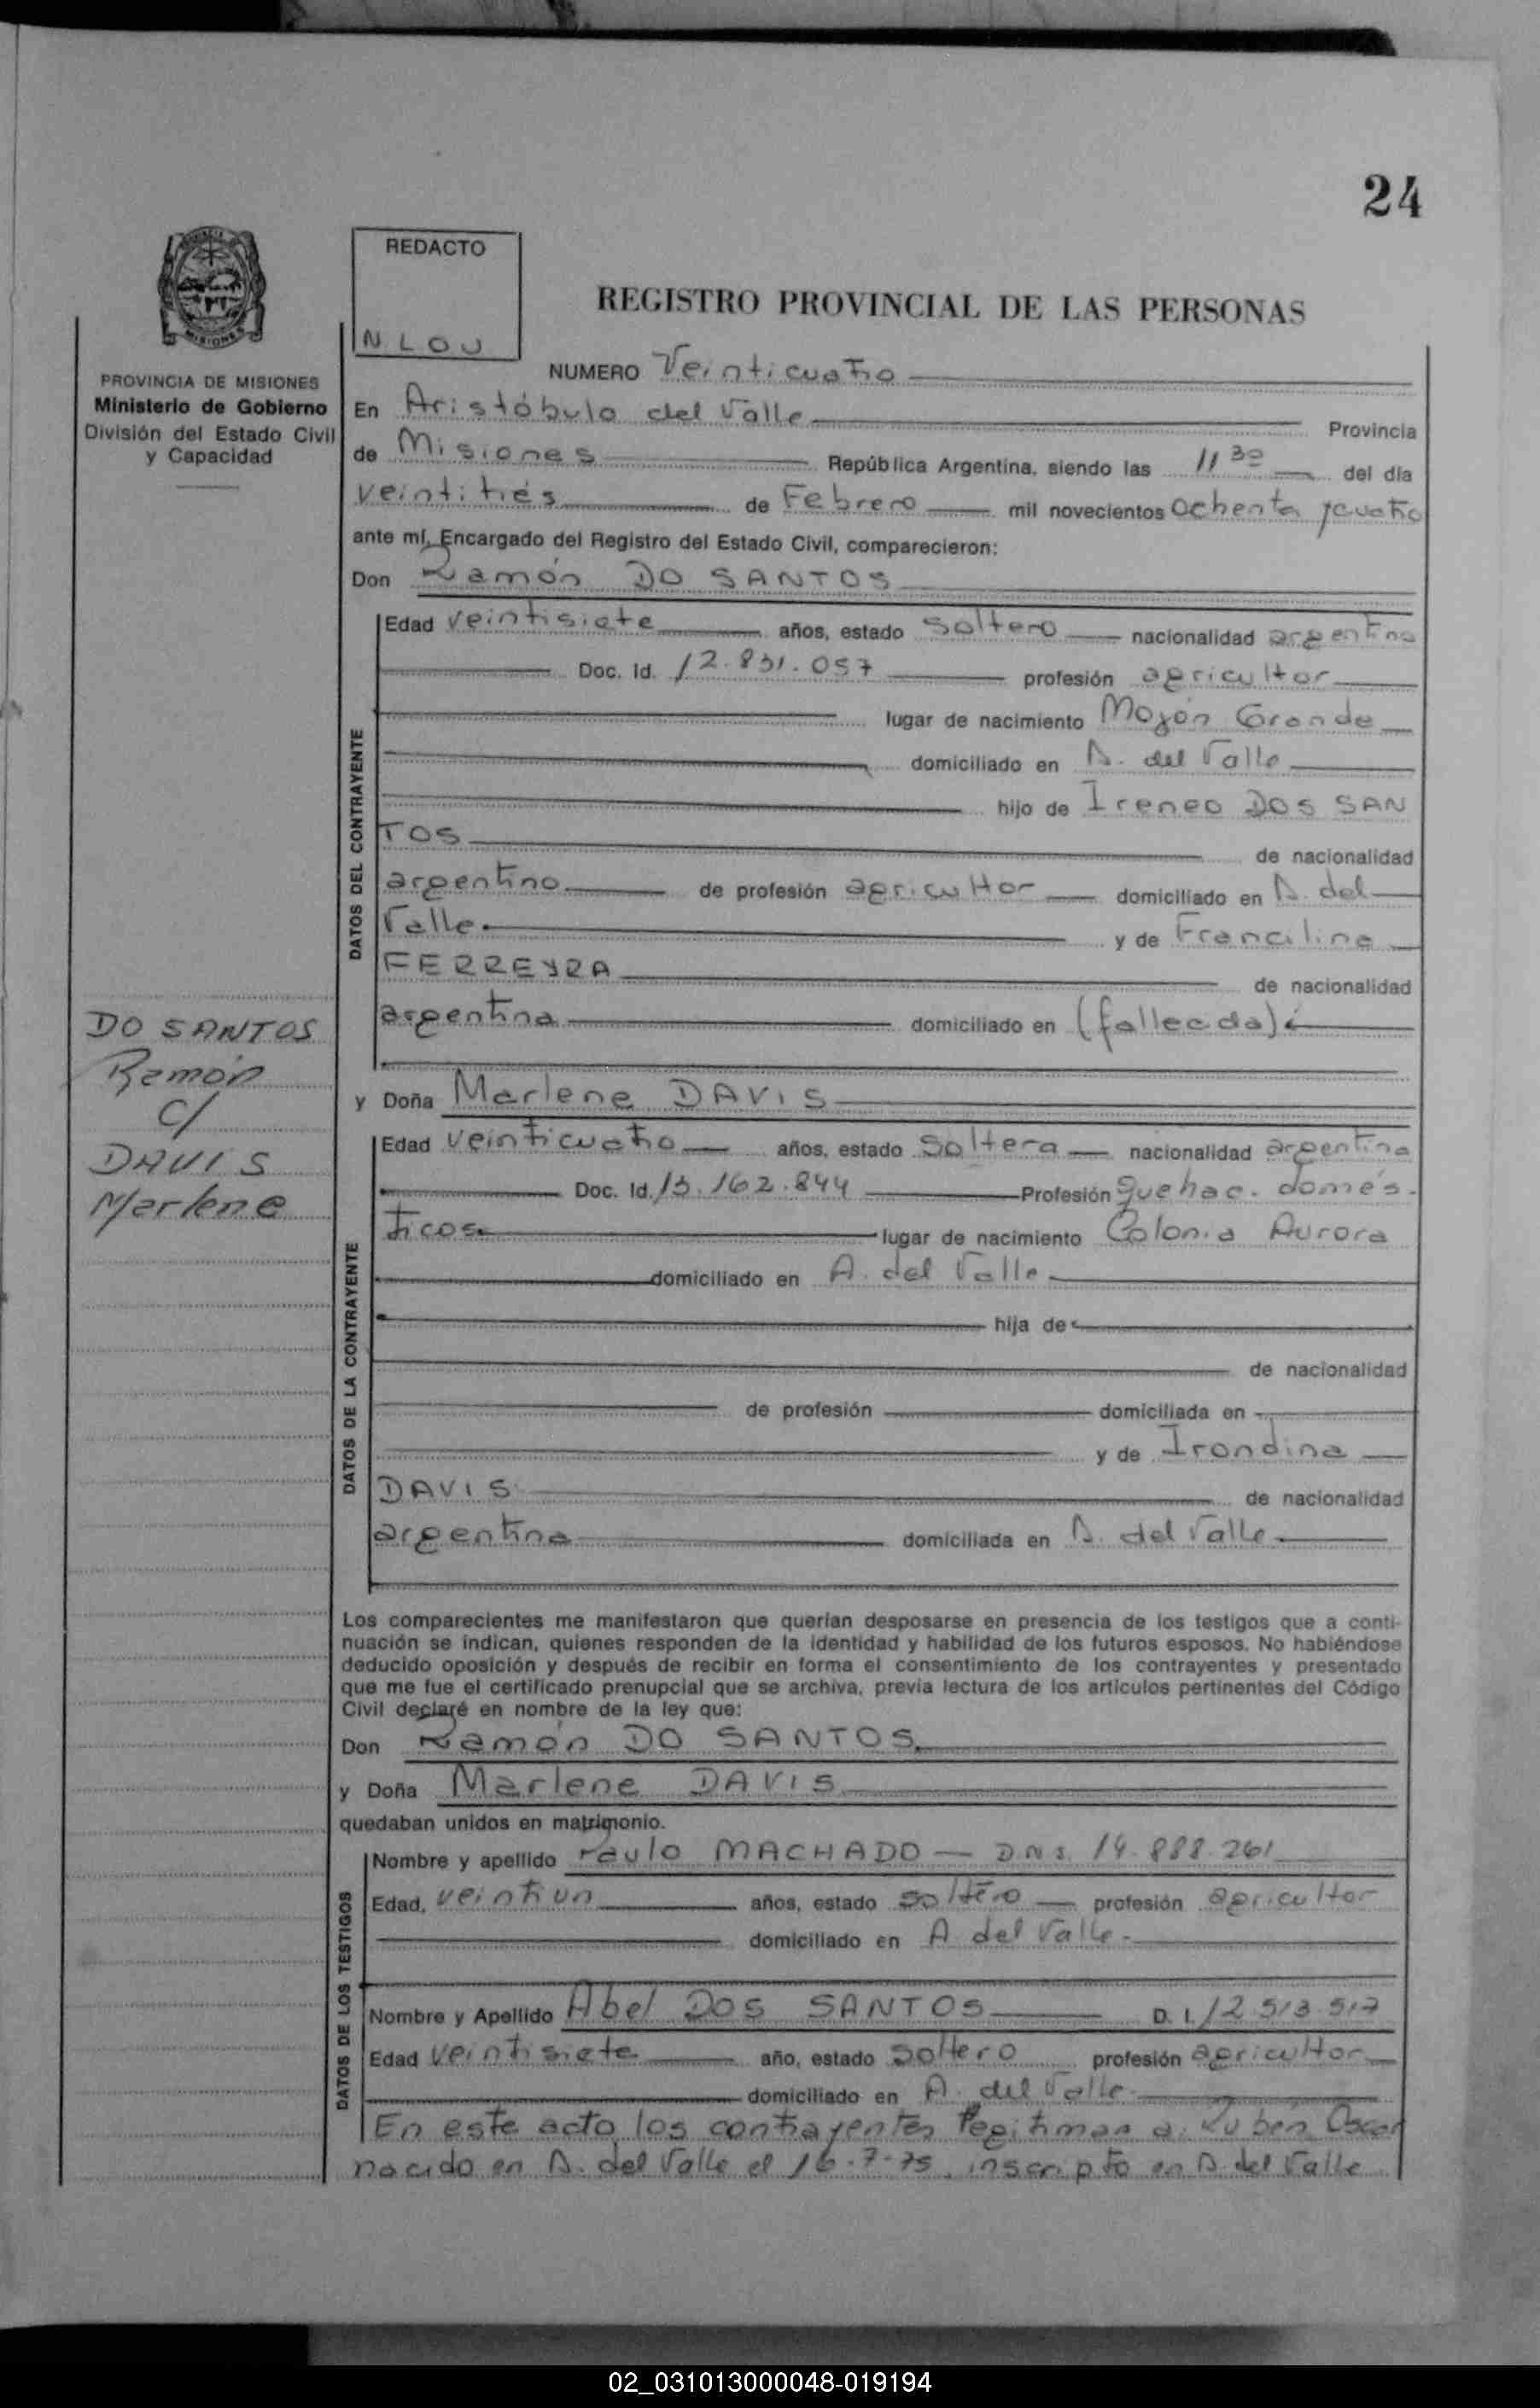 24
REDACTO
N L O U
REGISTRO PROVINCIAL DE LAS PERSONAS
PROVINCIA DE MISIONES
Ministerio de Gobierno
División del Estado Civil
y Capacidad
NUMERO Veinticuatro
En Aristóbulo del Valle Provincia
de Misiones República Argentina, siendo las 11 30 del día
veintitrés de Febrero mil novecientos ochenta y cuatro
ante mí, Encargado del Registro del Estado Civil, comparecieron:
Don Ramón DO SANTOS
DATOS DEL CONTRAYENTE
Edad veintisiete años, estado soltero nacionalidad argentino
Doc. Id. 12.831.057 profesión agricultor
lugar de nacimiento Mojón Grande
domiciliado en A. del Valle
hijo de Ireneo DOS SAN
TOS de nacionalidad
argentino de profesión agricultor domiciliado en A. del
Valle. y de Francilina
FERREYRA de nacionalidad
argentina domiciliado en (fallecida)
DO SANTOS
Ramón
C/
DAVIS
Marlene
y Doña Marlene DAVIS
DATOS DE LA CONTRAYENTE
Edad veinticuatro años, estado soltera nacionalidad argentina
Doc. Id. 13.162.844 Profesión quehac. domés-
ticos lugar de nacimiento Colonia Aurora
domiciliado en A. del Valle
hija de
de nacionalidad
de profesión domiciliada en
y de Irondina
DAVIS de nacionalidad
argentina domiciliada en A. del Valle
Los comparecientes me manifestaron que querían desposarse en presencia de los testigos que a conti-
nuación se indican, quienes responden de la identidad y habilidad de los futuros esposos. No habiéndose
deducido oposición y después de recibir en forma el consentimiento de los contrayentes y presentado
que me fue el certificado prenupcial que se archiva, previa lectura de los artículos pertinentes del Código
Civil declaré en nombre de la ley que:
Don Ramón DO SANTOS
y Doña Marlene DAVIS
quedaban unidos en matrimonio.
DATOS DE LOS TESTIGOS
Nombre y apellido Paulo MACHADO — DNI. 14.888.261
Edad, veintiun años, estado soltero profesión agricultor
domiciliado en A. del Valle.
Nombre y Apellido Abel DOS SANTOS D. I. 12.513.517
Edad veintisiete año, estado soltero profesión agricultor
domiciliado en A. del Valle
En este acto los contrayentes legitiman a: Rubén Oscar
nacido en A. del Valle el 16-7-75, inscripto en A. del Valle
02_031013000048-019194